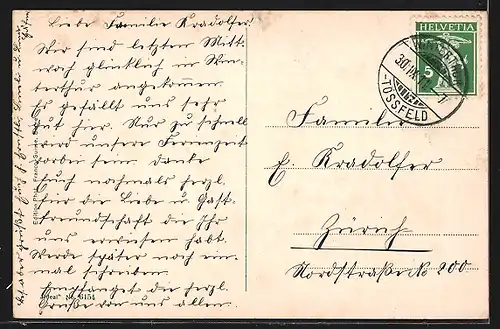 Liebe Familie Kradolfer!
Wir sind letzten Mitt-
woch glücklich in Win-
terthur angekommen.
Es gefällt uns sehr
gut hier. Nur zu schnell
wird unsere Ferienzeit
vorbei sein. Danke
Euch nochmals herzl.
für die Liebe u. Gast-
freundschaft die Ihr
uns erwiesen habt.
Werde später noch ein-
mal schreiben.
Empfanget die herzl.
Grüße von uns allen.
HELVETIA
5
WINTERTHUR
30.VII.
-TÖSSFELD
Familie
E. Kradolfer
Zürich
Nordstraße No 200
Edition Phot. Franco-Suisse
"Ideal" No. 6154